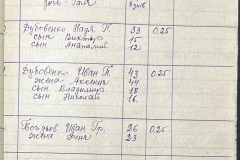 дочь Галя 3 дня
Дубовенко Марк П. 33 0,25
сын Виктор 15
сын Анатолий 12
Дубовенко Иван П. 43 0,25
жена Аксения 44
сын Владимир 18
сын Николай 16
Иван Гр. 26 0,25
жена 23